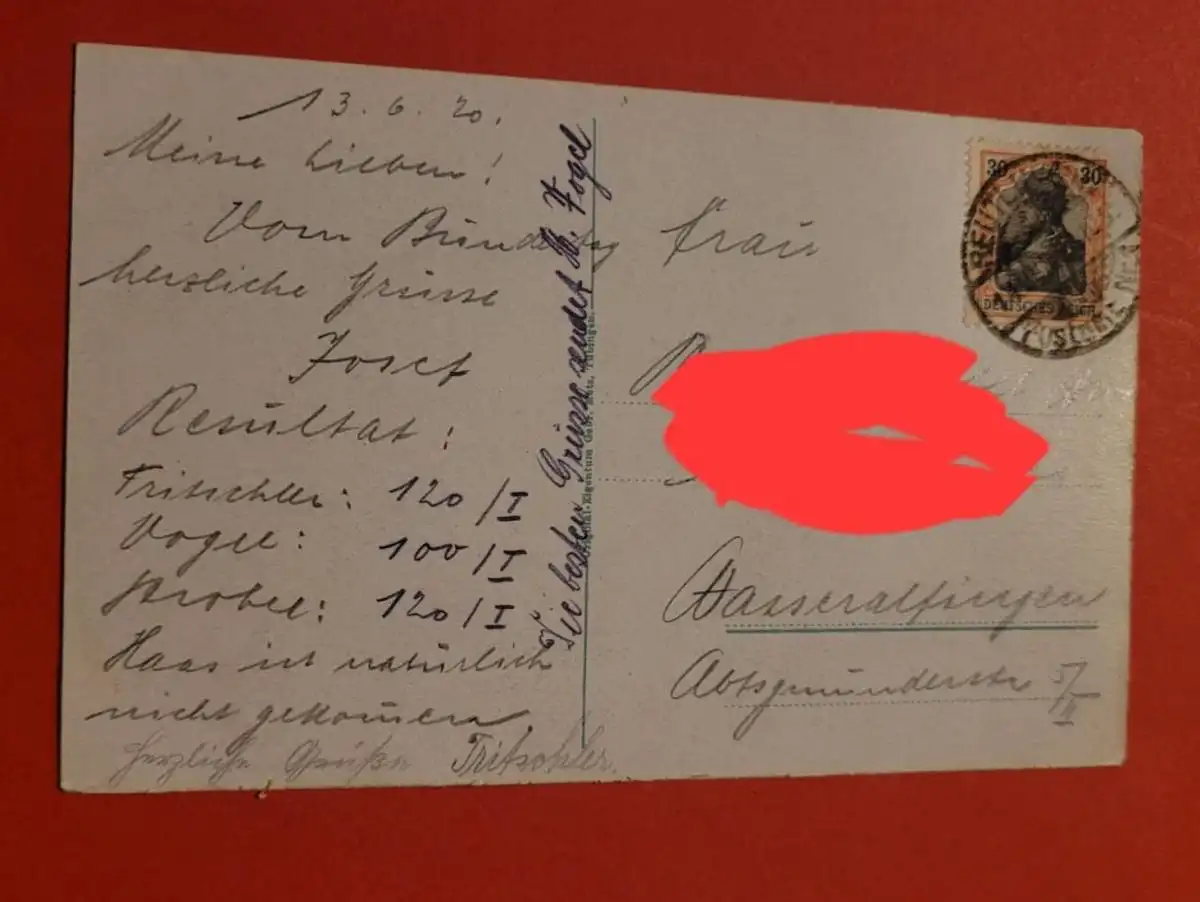 13. 6. 20.
Meine Lieben!
Vom Bundestag
herzliche Grüsse
Josef
Resultat:
Tritschler: 120/I
Vogel: 100/I
Strobel: 120/I
Haas ist natürlich
nicht gekommen.
Herzliche Grüße Tritschler.
Die besten Grüsse sendet M. Vogel
Original-Eigentum Gebr. Metz, Tübingen.
Frau
Wasseralfingen
Abtsgmünderstr 5/II
30 30
DEUTSCHES REICH